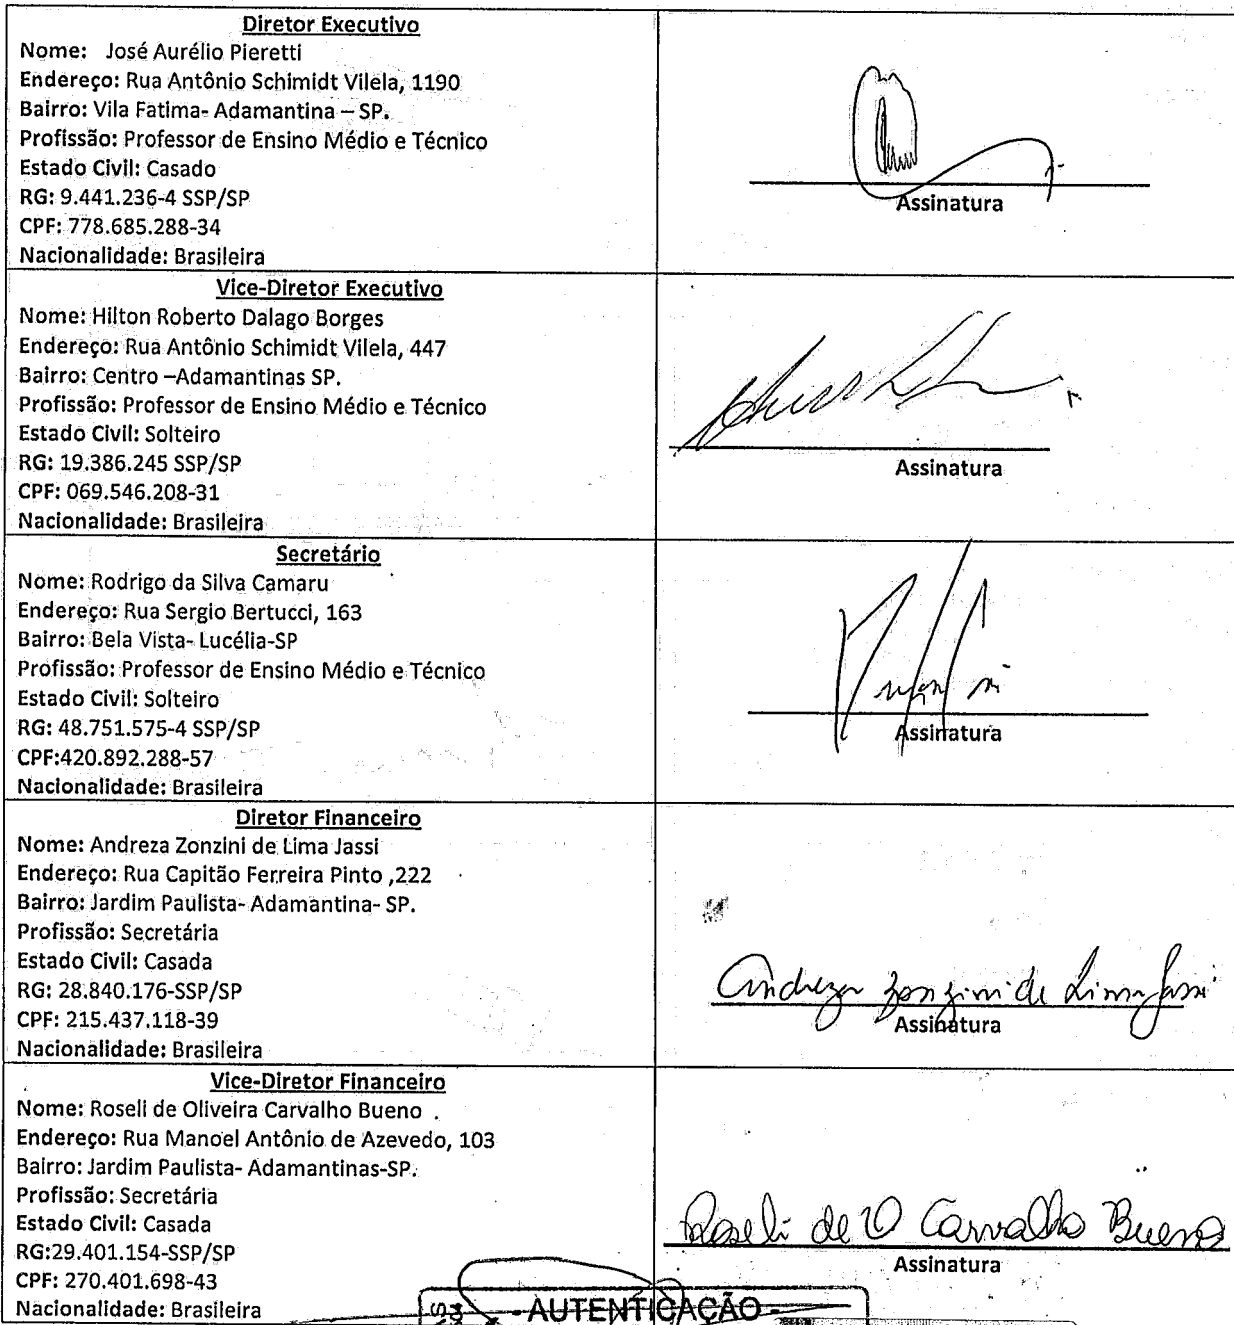 Diretor Executivo
Nome: José Aurélio Pieretti
Endereço: Rua Antônio Schimidt Vilela, 1190
Bairro: Vila Fatima- Adamantina – SP.
Profissão: Professor de Ensino Médio e Técnico
Estado Civil: Casado
RG: 9.441.236-4 SSP/SP
CPF: 778.685.288-34
Nacionalidade: Brasileira
Assinatura
Vice-Diretor Executivo
Nome: Hilton Roberto Dalago Borges
Endereço: Rua Antônio Schimidt Vilela, 447
Bairro: Centro –Adamantinas SP.
Profissão: Professor de Ensino Médio e Técnico
Estado Civil: Solteiro
RG: 19.386.245 SSP/SP
CPF: 069.546.208-31
Nacionalidade: Brasileira
Assinatura
Secretário
Nome: Rodrigo da Silva Camaru
Endereço: Rua Sergio Bertucci, 163
Bairro: Bela Vista- Lucélia-SP
Profissão: Professor de Ensino Médio e Técnico
Estado Civil: Solteiro
RG: 48.751.575-4 SSP/SP
CPF:420.892.288-57
Nacionalidade: Brasileira
Assinatura
Diretor Financeiro
Nome: Andreza Zonzini de Lima Jassi
Endereço: Rua Capitão Ferreira Pinto ,222
Bairro: Jardim Paulista- Adamantina- SP.
Profissão: Secretária
Estado Civil: Casada
RG: 28.840.176-SSP/SP
CPF: 215.437.118-39
Nacionalidade: Brasileira
Andreza Zonzini de Lima Jassi
Assinatura
Vice-Diretor Financeiro
Nome: Roseli de Oliveira Carvalho Bueno .
Endereço: Rua Manoel Antônio de Azevedo, 103
Bairro: Jardim Paulista- Adamantinas-SP.
Profissão: Secretária
Estado Civil: Casada
RG:29.401.154-SSP/SP
CPF: 270.401.698-43
Nacionalidade: Brasileira
Roseli de O Carvalho Bueno
Assinatura
- AUTENTICAÇÃO -